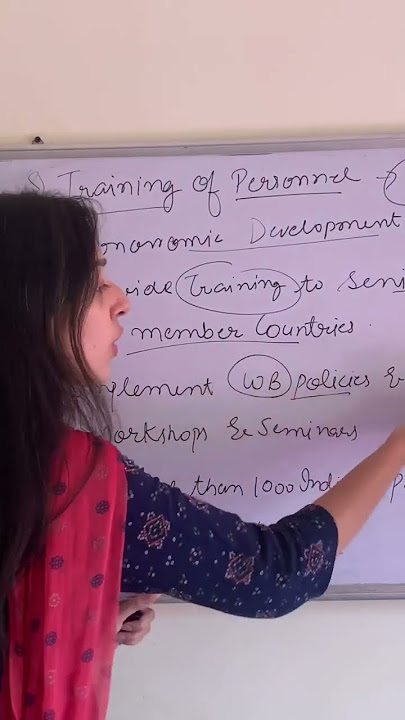 Training of Personnel →
onomic Development
vide Training to Seni
member Countries.
mplement WB policies &
orkshops & Seminars
than 1000 Indi